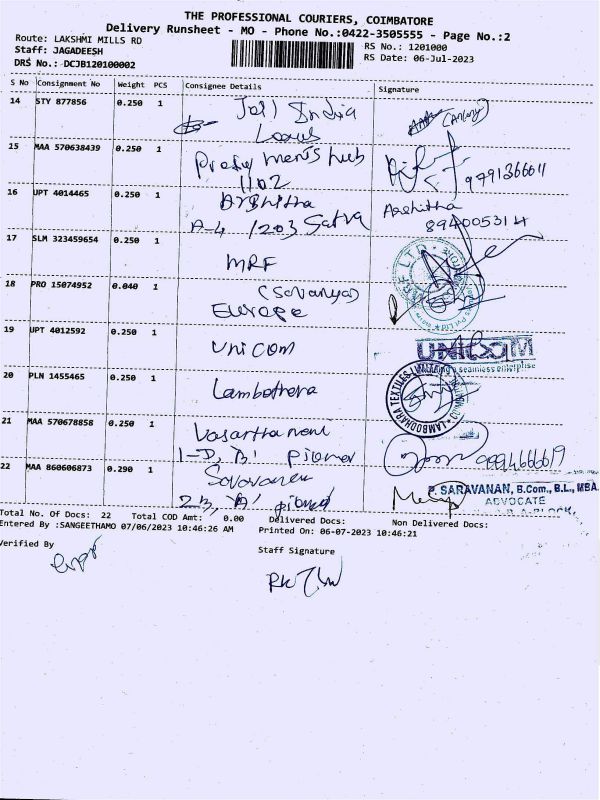 THE PROFESSIONAL COURIERS, COIMBATORE
Delivery Runsheet - MO - Phone No.:0422-3505555 - Page No.:2
Route: LAKSHMI MILLS RD
RS No.: 1201000
Staff: JAGADEESH
RS Date: 06-Jul-2023
DRS No.: DCJB120100002
S No Consignment No Weight PCS Consignee Details Signature
14 STY 877856 0.250 1 India
15 MAA 570638439 0.250 1 men's hub
1102
16 UPT 4014465 0.250 1 Arshitha Arshitha
A-4 /203 Satva 8940053114
17 SLM 323459654 0.250 1 MRF
18 PRO 15074952 0.040 1
Europe
19 UPT 4012592 0.250 1 Unicom UNICOM
seamless enterprise
20 PLN 1455465 0.250 1 LAMBODHARA TEXTILES LIMITED
21 MAA 570678858 0.250 1
22 MAA 860606873 0.290 1 P. SARAVANAN, B.Com., B.L., MBA
ADVOCATE
Total No. Of Docs: 22 Total COD Amt: 0.00 Delivered Docs: Non Delivered Docs:
Entered By :SANGEETHAMO 07/06/2023 10:46:26 AM Printed On: 06-07-2023 10:46:21
Verified By
Staff Signature